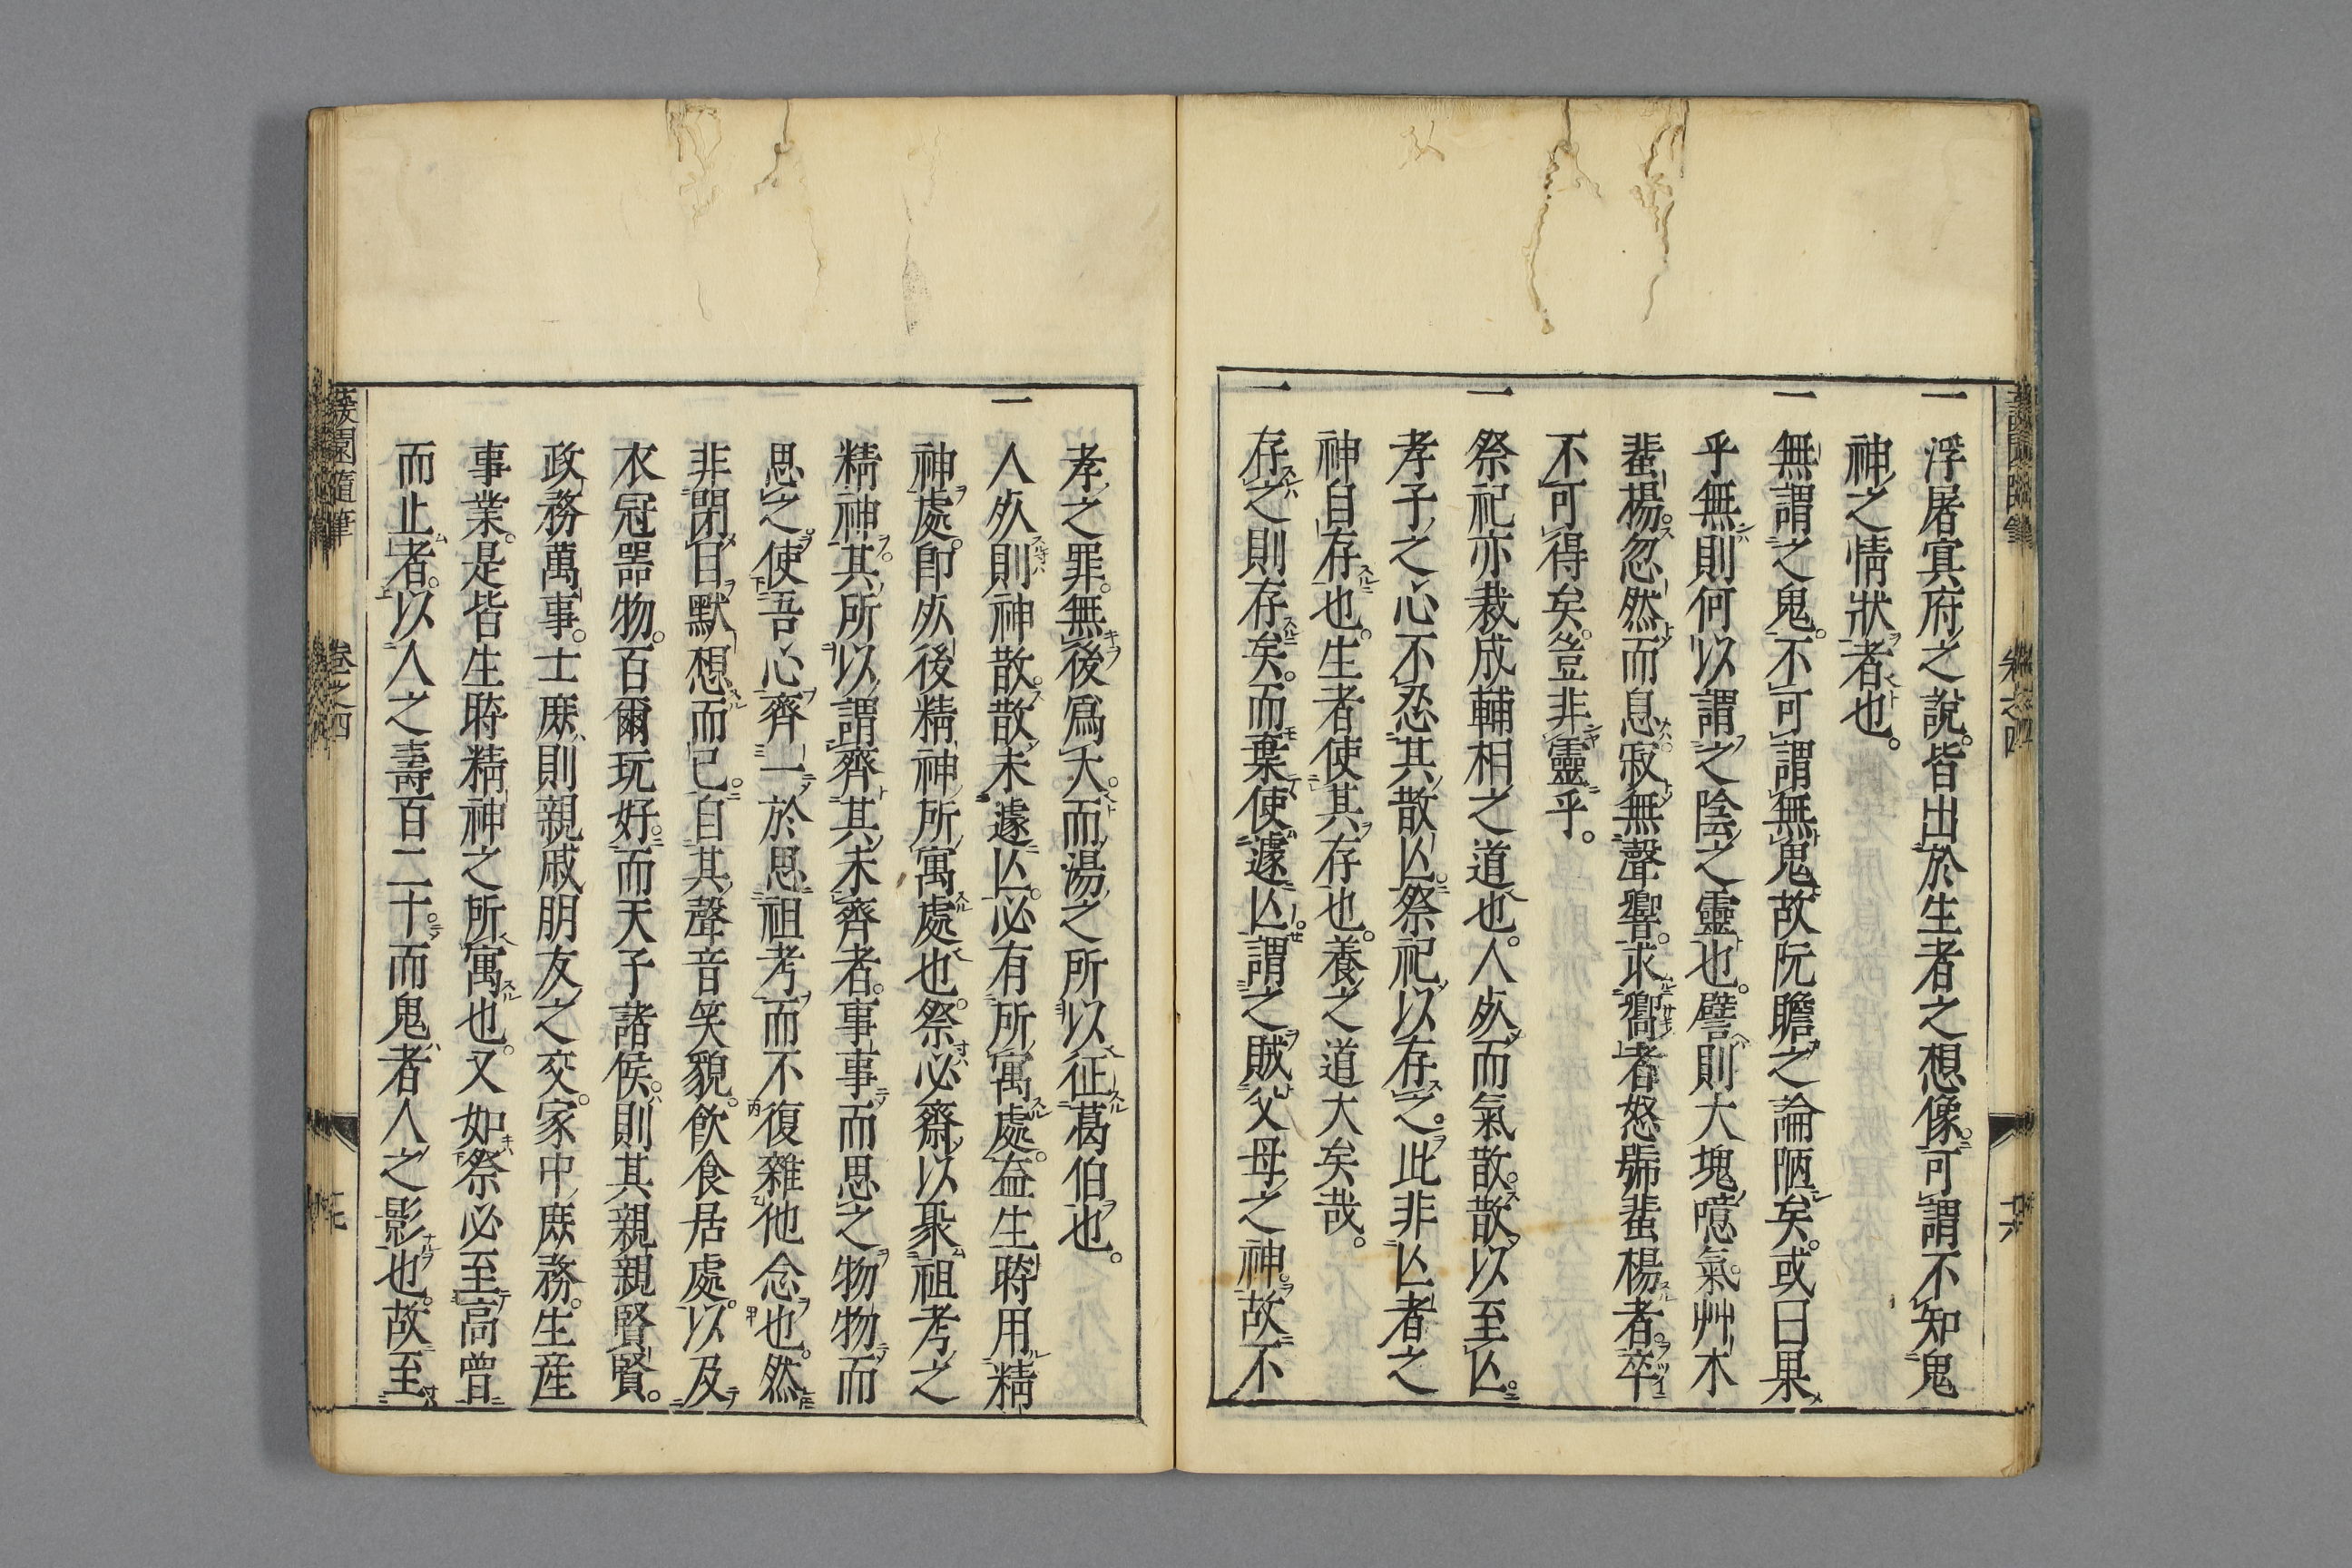 一浮屠冥府之說。皆出於生者之想像。可謂不知鬼
神之情狀者也。
一無謂之鬼。不可謂無鬼。故阮瞻之論陋矣。或曰果
乎無則何以謂之陰之靈也。譬則大塊噫氣。艸木
蜚楊。忽然而息。寂無聲響。求嚮者怒號蜚楊者。卒
不可得矣。豈非靈乎。
一祭祀亦裁成輔相之道也。人死而氣散。散以至亾。
孝子之心不忍其散亾。祭祀以存之。此非亾者之
神自存也。生者使其存也。養之道大矣哉。
一存之則存矣。而棄使遽亾。謂之賊父母之神。故不
孝之罪。無後爲大。而湯之所以征葛伯也。
一人死則神散。散未遽亾。必有所寓處。益生時用精
神處。卽死後精神所寓處也。祭必齋以聚祖考之
精神。其所以謂齊其未齊者。事事而思之物物而
思之。使吾心齊一於思祖考而不復雜他念也。然
非閉目默想而已。自其聲音笑貌。飲食居處。以及
衣冠器物。百爾玩好。而天子諸侯。則其親親賢賢。
政務萬事。士庶則親戚朋友之交。家中庶務。生産
事業。是皆生時精神之所寓也。又如祭必至高曾
而止者。以人之壽百二十。而鬼者人之影也。故至
蘐園隨筆　卷之四
卷之四